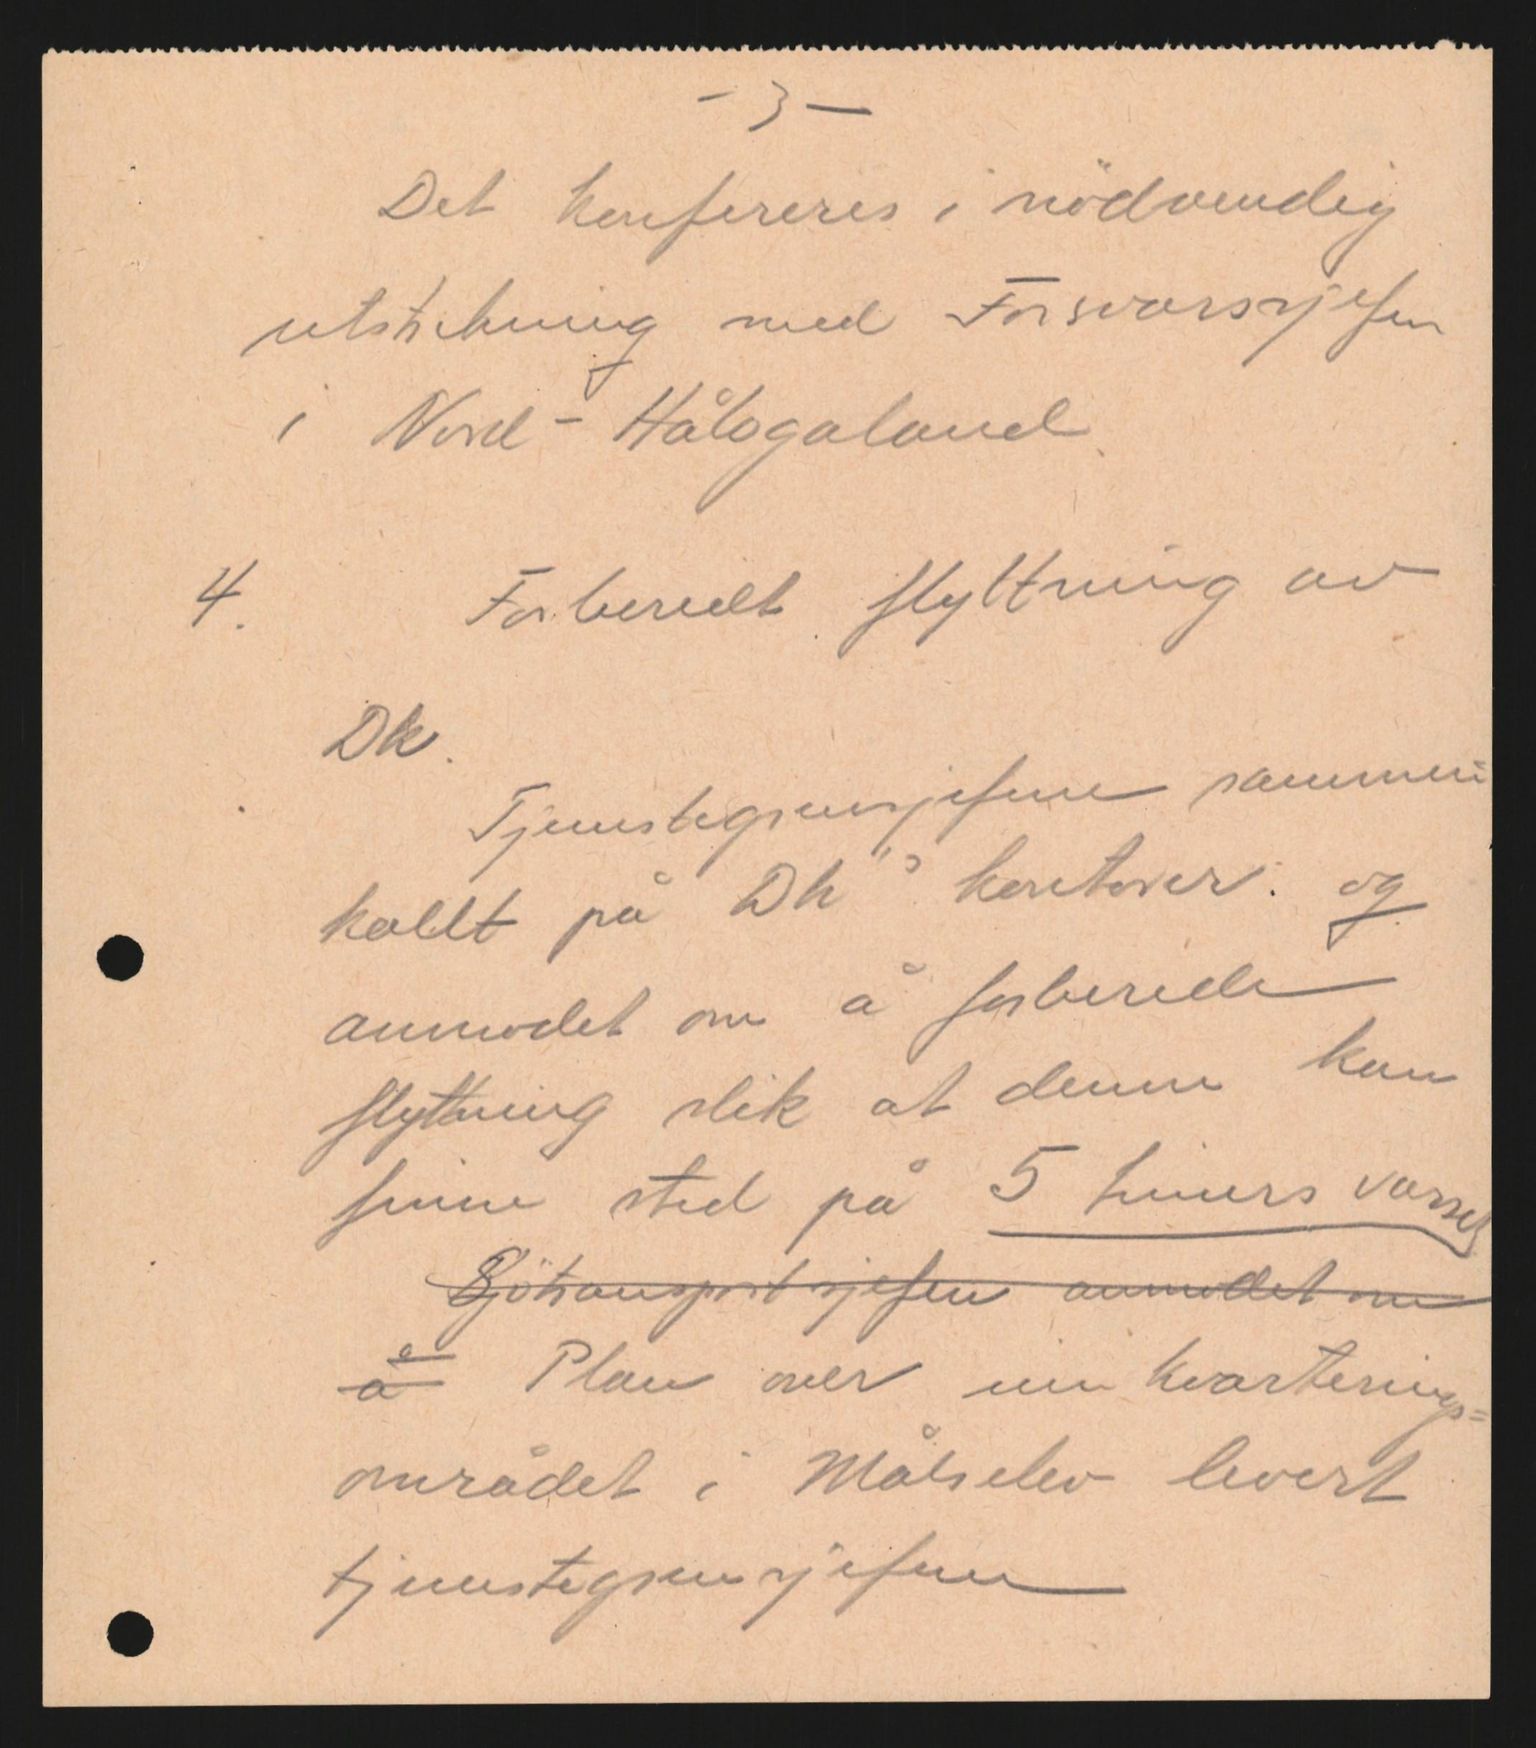 - 3 -
Det konfereres i nödvendig
utstrekning med Forsvarssjefen
i Nord-Hålogaland
4. Forberedt flyttning av
Dk.
Tjenstegrensjefene sammen
kallt på Dk's kontorer. og
anmodet om å forberede
flyttning slik at denne kan
finne sted på 5 timers varsel
Sjötransportsjefen anmodet om
å Plan over innkvarterings=
området i Målselev levert
tjenstegrensjefene